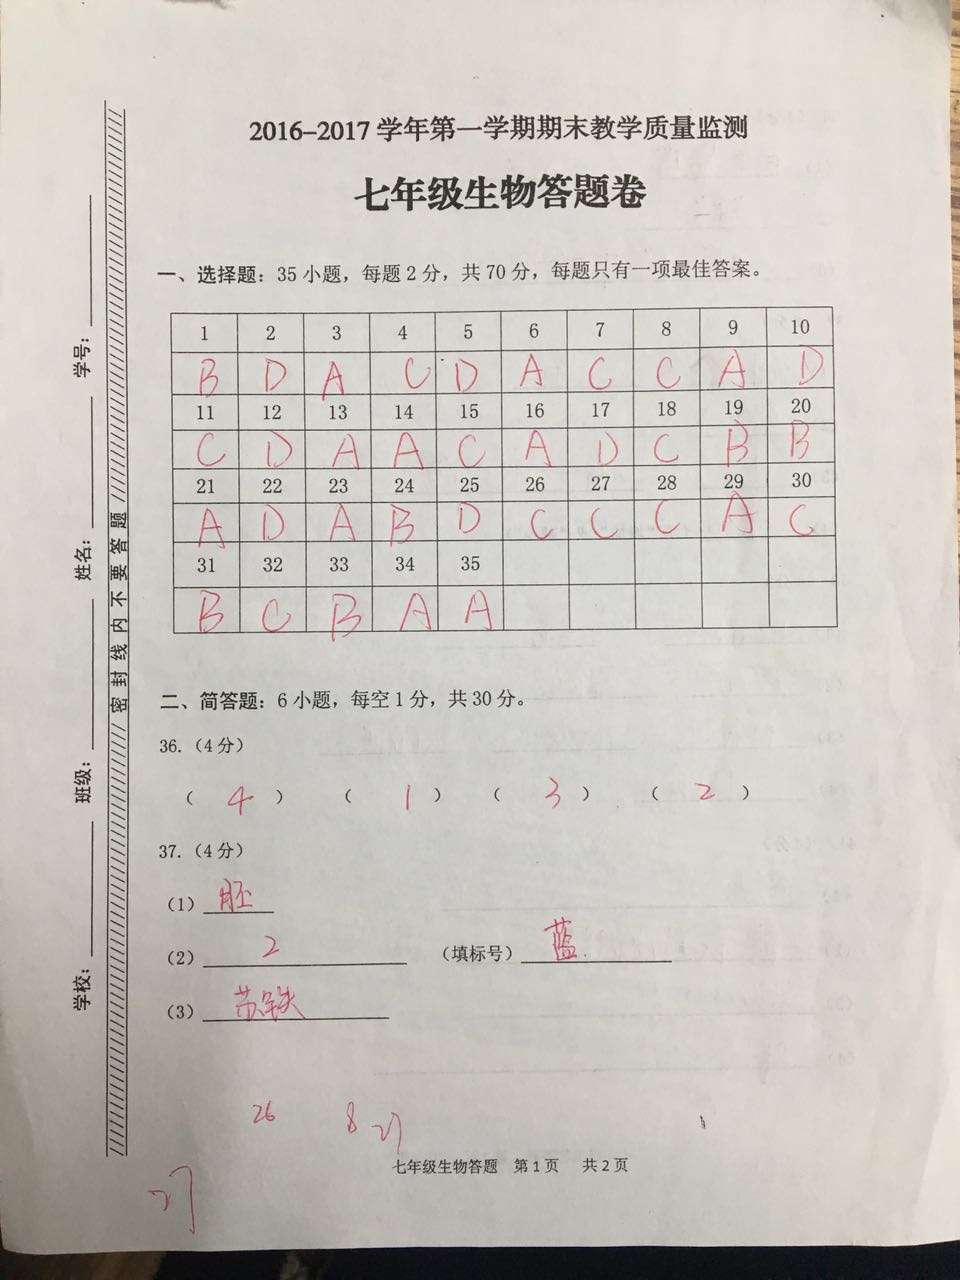 2016-2017 学年第一学期期末教学质量监测
七年级生物答题卷
一、选择题：35 小题，每题 2 分，共 70 分，每题只有一项最佳答案。
1 2 3 4 5 6 7 8 9 10
B D A C D A C C A D
11 12 13 14 15 16 17 18 19 20
C D A A C A D C B B
21 22 23 24 25 26 27 28 29 30
A D A B D C C C A C
31 32 33 34 35
B C B A A
二、简答题：6 小题，每空 1 分，共 30 分。
36.（4 分）
（ 4 ） （ 1 ） （ 3 ） （ 2 ）
37.（4 分）
(1) 胚
(2) 2 （填标号） 蓝
(3) 苏铁
26 8 27
27
七年级生物答题 第 1 页 共 2 页
学校： 班级： 姓名： 学号：
密封线内不要答题